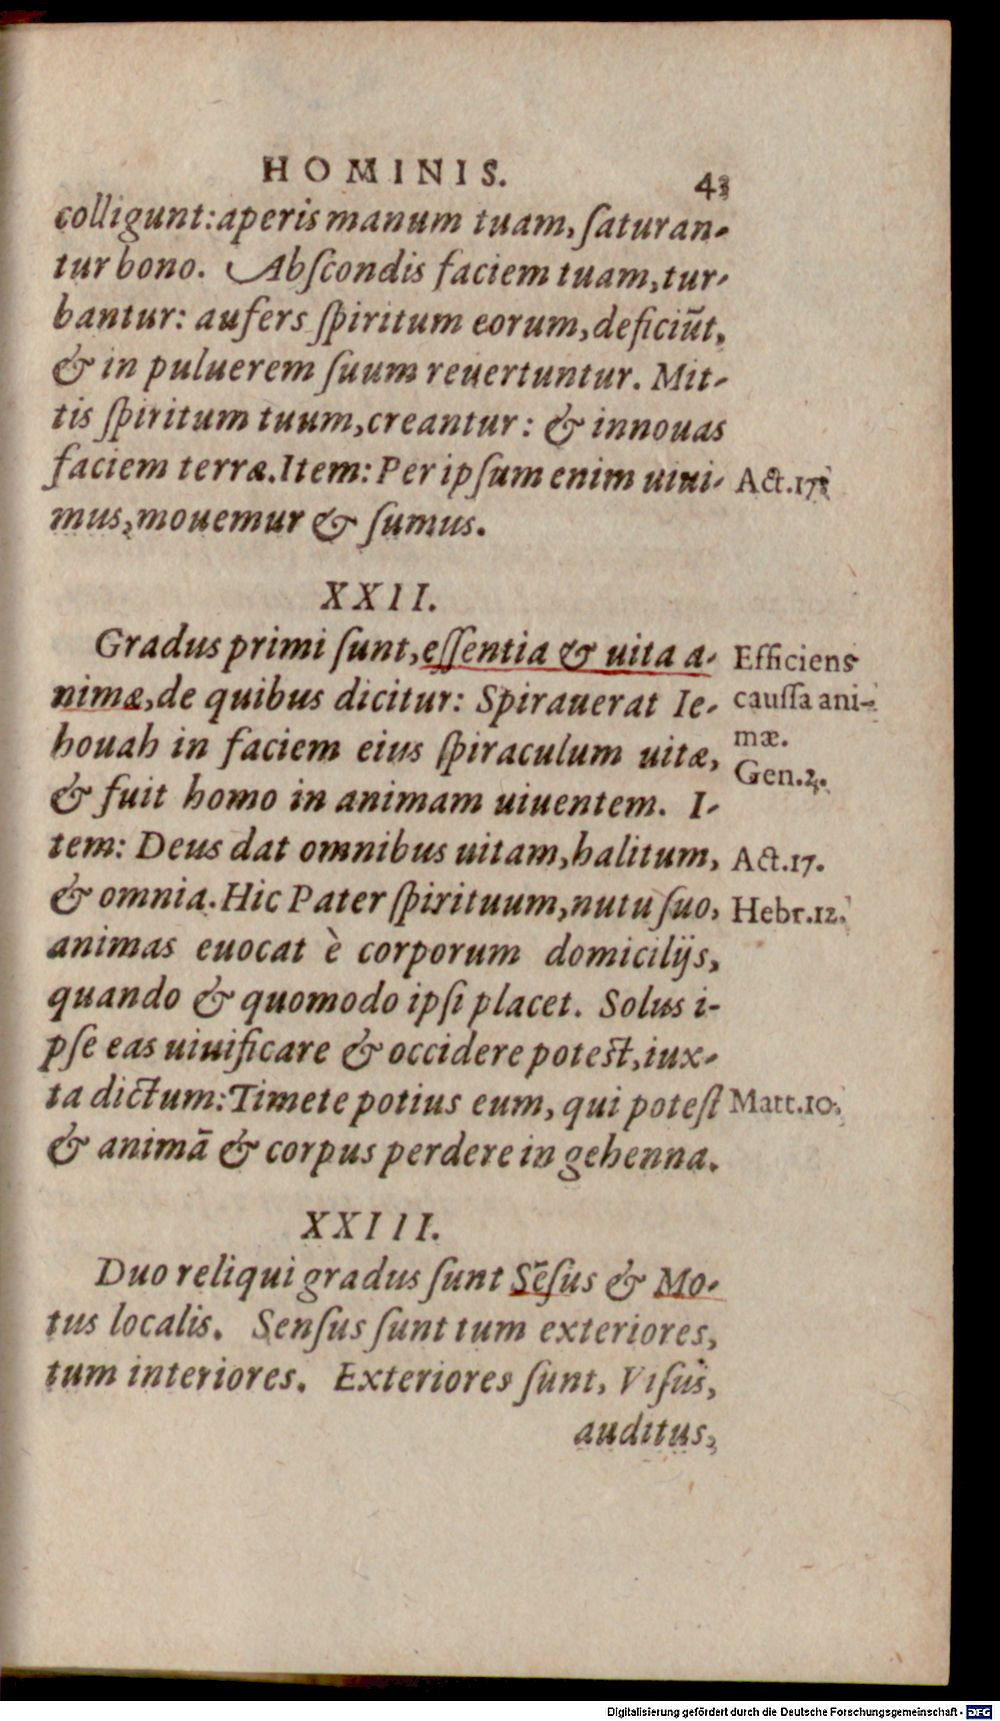 HOMINIS. 43
colligunt: aperis manum tuam, ſaturan-
tur bono. Abſcondis faciem tuam, tur-
bantur: aufers ſpiritum eorum, deficiūt,
& in puluerem ſuum reuertuntur. Mit-
tis ſpiritum tuum, creantur: & innouas
faciem terræ. Item: Per ipſum enim uiui- Act.17.
mus, mouemur & ſumus.
XXII.
Gradus primi ſunt, eſſentia & uita a- Efficiens
nimæ, de quibus dicitur: Spirauerat Ie- cauſſa ani-
houah in faciem eius ſpiraculum uitæ, mæ.
Gen.2.
& fuit homo in animam uiuentem. I-
tem: Deus dat omnibus uitam, halitum, Act.17.
& omnia. Hic Pater ſpirituum, nutu ſuo, Hebr.12.
animas euocat è corporum domicilijs,
quando & quomodo ipſi placet. Solus i-
pſe eas uiuificare & occidere poteſt, iux-
ta dictum: Timete potius eum, qui poteſt Matt.10.
& animā & corpus perdere in gehenna.
XXIII.
Duo reliqui gradus ſunt Sēſus & Mo-
tus localis. Senſus ſunt tum exteriores,
tum interiores. Exteriores ſunt, Viſus,
auditus,
Digitalisierung gefördert durch die Deutsche Forschungsgemeinschaft - DFG